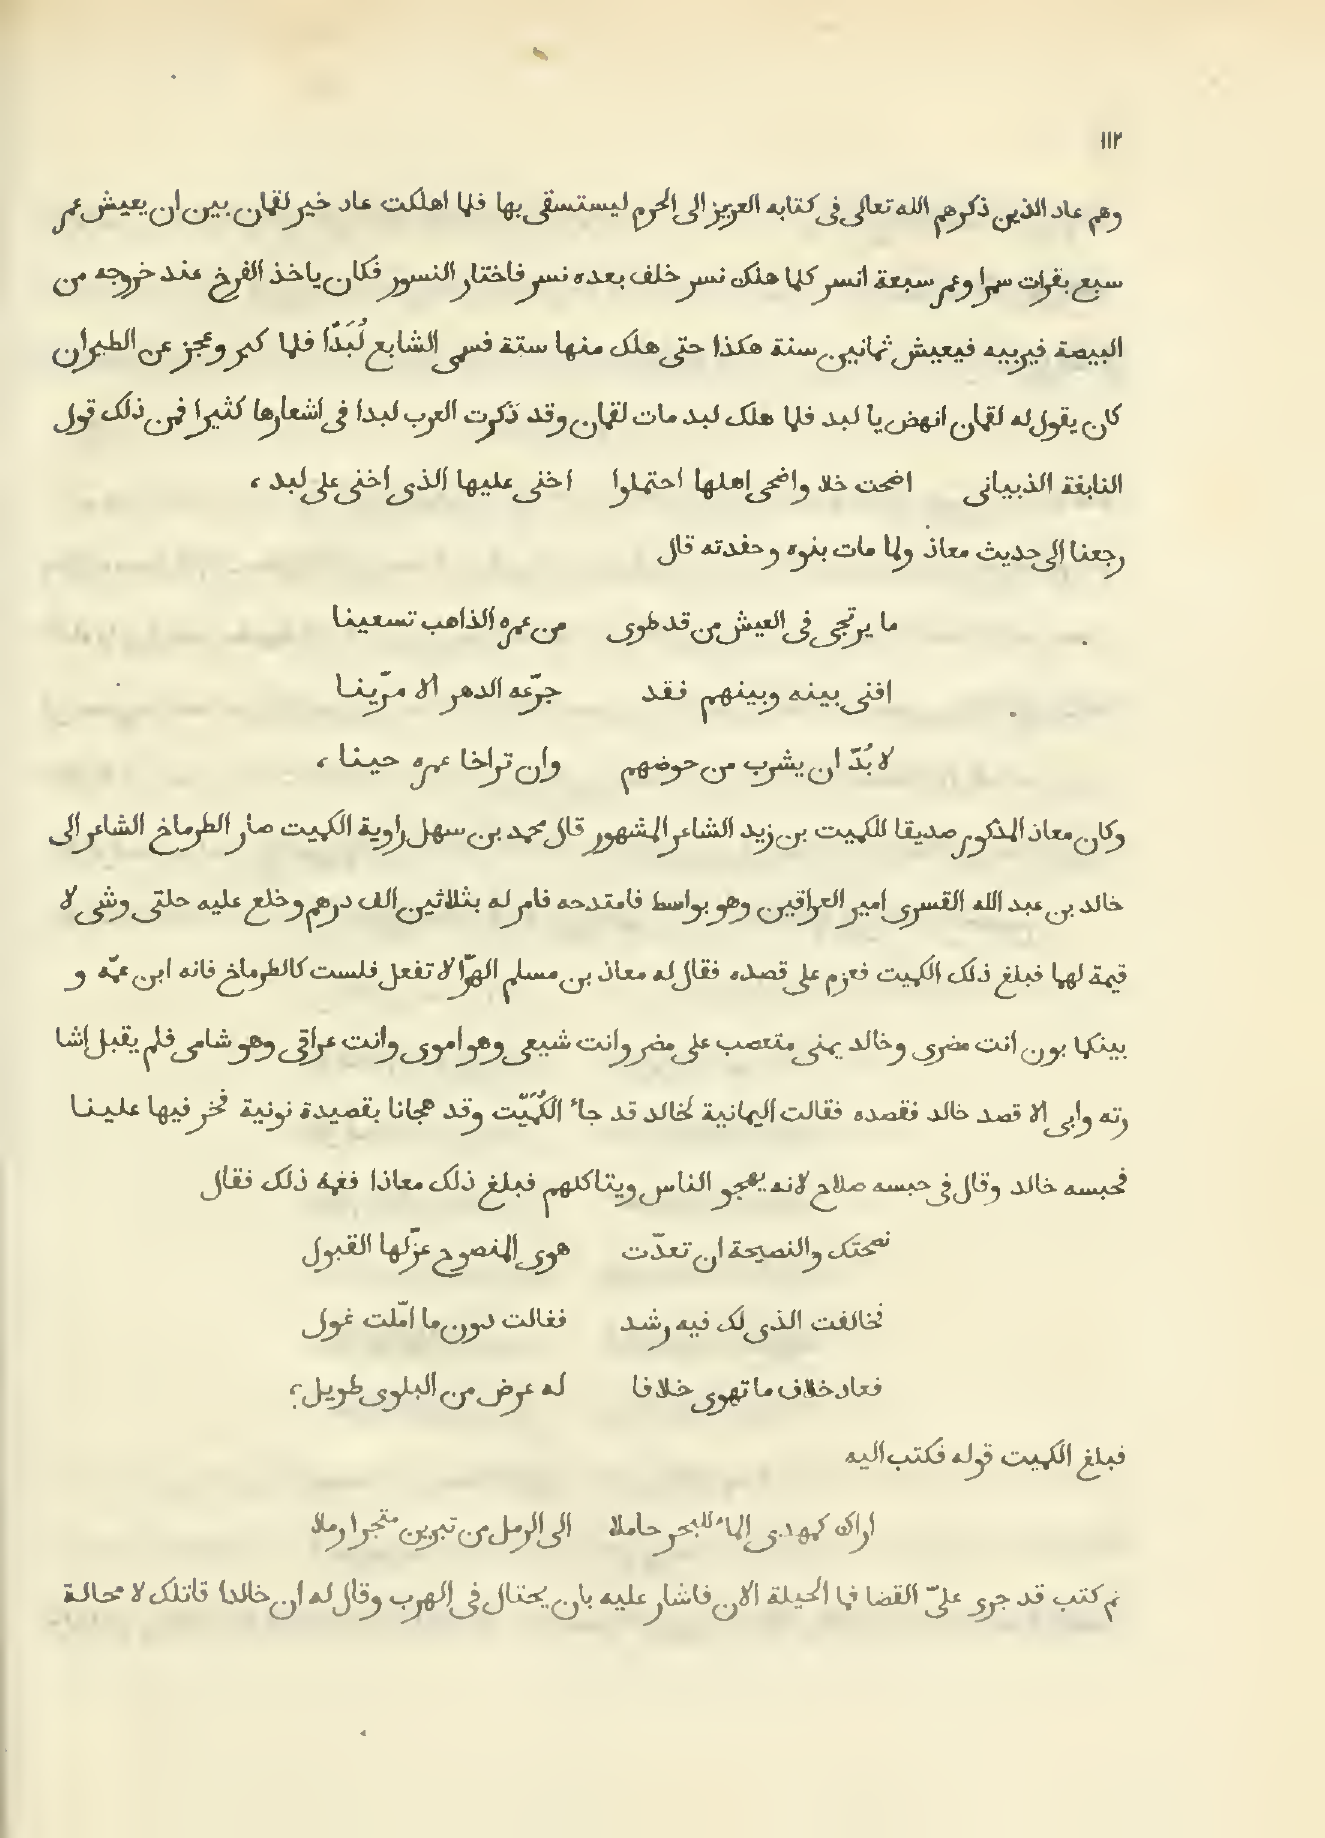 ١١٢
وهم عاد الذين ذكرهم الله تعالى فى كتابه العزيز الى الحرم ليستسقى بها فلما اهلكت عاد خير لقمان بين ان يعيش عمر
سبع بقرات سمرا وعمر سبعة انسر كلما هلك نسر خلف بعده نسر فاختار النسور فكان ياخذ الفرخ عند خروجه من
البيصة فيربيه فيعيش ثمانين سنة هكذا حتى هلك منها ستة فسمى الشابع لُبَدًا فلما كبر وعجز عن الطيران
كان يقول له لقمان انهض يا لبد فلما هلك لبد مات لقمان وقد ذكرت العرب لبدا فى اشعارها كثيرا فمن ذلك قول
النابغة الذبيانى اضحت خلا واضحى اهلها احتملوا اخنى عليها الذى اخنى على لبد ،
رجعنا الى حديث معاذ ولما مات بنوه وحفدته قال
ما يرتجى فى العيش من قد طوى من عمره الذاهب تسعينا
افنى بينه وبينهم فقد جرّعه الدهر الا مرّينا
لا بُدّ ان يشرب من حوضهم وان تراخا عمره حينا ،
وكان معاذ المذكور صديقا للكميت بن زيد الشاعر المشهور قال محمد بن سهل راوية الكميت صار الطرماخ الشاعر الى
خالد بن عبد الله القسرى امير العراقين وهو بواسط فامتدحه فامر له بثلاثين الف درهم وخلع عليه حلتى وشى لا
قيمة لهما فبلغ ذلك الكميت فعزم على قصده فقال له معاذ بن مسلم الهرّا لا تفعل فلست كالطرماخ فانه ابن عمّه و
بينكما بون انت مضرى وخالد يمنى متعصب على مضر وانت شيعى وهو اموى وانت عراقى وهو شامى فلم يقبل اشا
رته وابى الا قصد خالد فقصده فقالت اليمانية لخالد قد جاء الكُمَيْت وقد هجانا بقصيدة نونية فخر فيها علينا
فحبسه خالد وقال فى حبسه صلاح لانه يهجو الناس ويتاكلهم فبلغ ذلك معاذا فغمه ذلك فقال
نصحتك والنصيحة ان تعدّت هوى المنصوح عزّلها القبول
فخالفت الذى لك فيه رشد فغالت دون ما امّلت غول
فعاد خلاف ما تهوى خلافا له عرض من البلوى طويل ،
فبلغ الكميت قوله فكتب اليه
اراك كمهدى الماء للبحر حاملا الى الرمل من تبرين متجرا رملا
ثم كتب قد جرى علىّ القضا فما الحيلة الان فاشار عليه بان يحتال فى الهرب وقال له ان خالدا قاتلك لا محالة